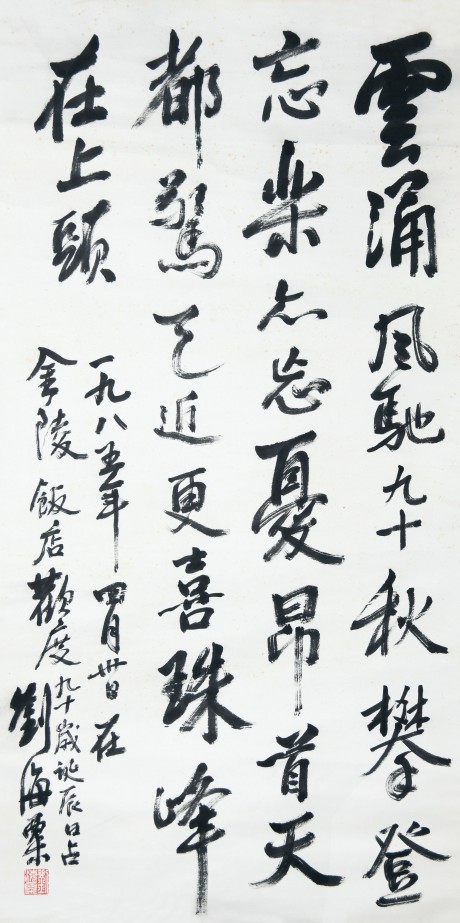 雲涌风馳九十秋攀登
忘楽亦忘憂昂首天
都驚已近更喜珠峰
在上頭
一九八五年四月卅日在
金陵飯店歡度九十歲誕辰日占
劉海粟